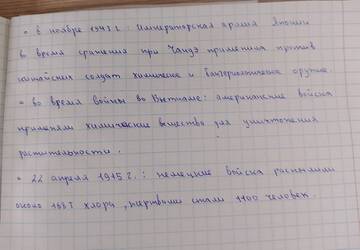 • в ноябре 1943 г. Императорская армия Японии
в время сражения при Чандэ применила против
китайских солдат химическое и бактериологическое оружие.
• во время войны во Вьетнаме: американские войска
применяли химические вещества для уничтожения
растительности.
• 22 апреля 1915 г.: немецкие войска распылили
около 168 т хлора, жертвами стали 1100 человек.